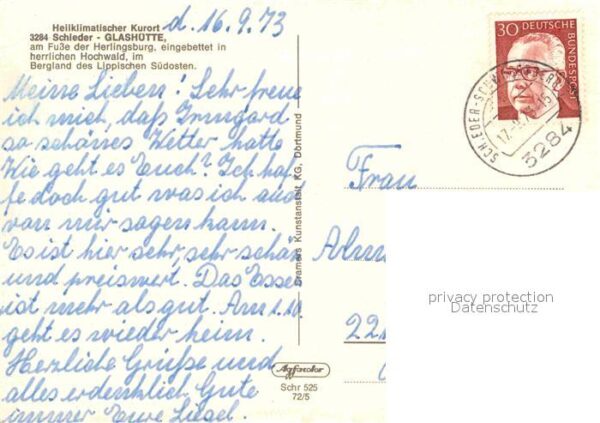 Heilklimatischer Kurort
3284 Schieder - GLASHÜTTE,
am Fuße der Herlingsburg, eingebettet in
herrlichen Hochwald, im
Bergland des Lippischen Südosten.
d. 16.9.73
Meine Lieben! Sehr freue
ich mich, daß Irmgard
so schönes Wetter hatte
Wie geht es Euch? Ich hof-
fe doch gut was ich auch
von mir sagen kann.
Es ist hier sehr, sehr schön
und preiswert. Das Essen
ist mehr als gut. Am 1.10.
geht es wieder heim.
Herzliche Grüße und
alles erdenklich Gute
immer Eure Liesel.
Cramers Kunstanstalt KG, Dortmund
Agfacolor
Schr 525
72/5
30 DEUTSCHE
BUNDESPOST
3284
Frau
22
privacy protection
Datenschutz